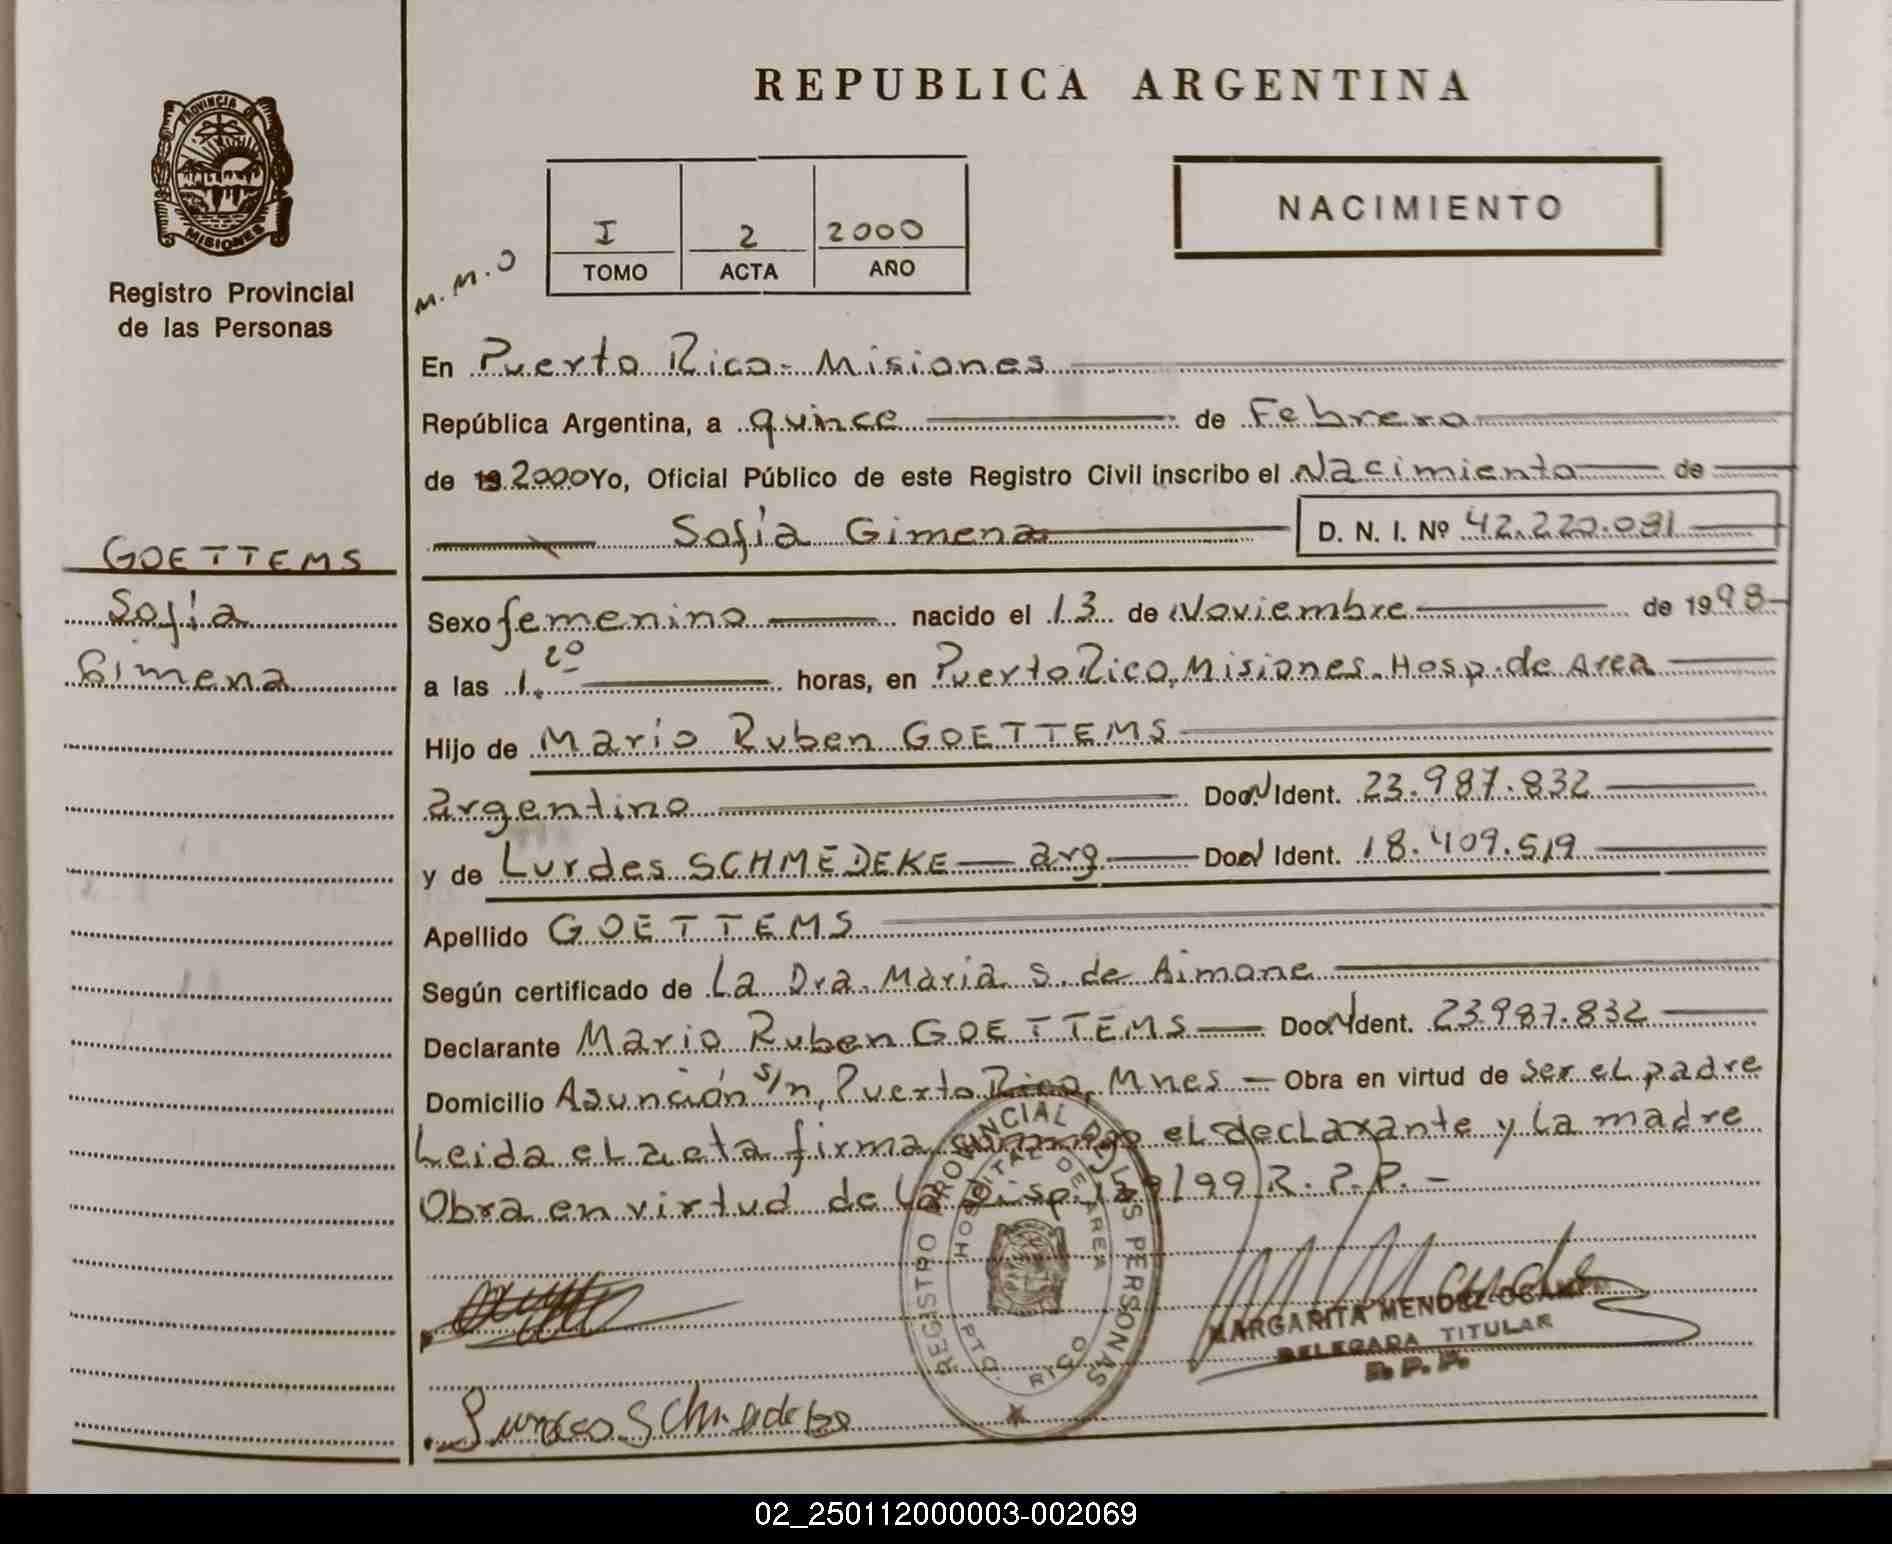 PROVINCIA DE
MISIONES
Registro Provincial
de las Personas
GOETTEMS
Sofía
Gimena
REPUBLICA ARGENTINA
NACIMIENTO
I 2 2000
TOMO ACTA AÑO
M.M.O
En Puerto Rico - Misiones
República Argentina, a quince de Febrero
de 19 2000 Yo, Oficial Público de este Registro Civil inscribo el Nacimiento de
Sofía Gimena D. N. I. Nº 42.220.081
Sexo femenino nacido el 13 de Noviembre de 1998
a las 1.20 horas, en Puerto Rico, Misiones. Hosp. de Area
Hijo de Mario Ruben GOETTEMS
argentino Doc. N Ident. 23.987.832
y de Lurdes SCHMEDEKE arg Doc. N Ident. 18.409.519
Apellido GOETTEMS
Según certificado de La Dra. Maria S. de Aimone
Declarante Mario Ruben GOETTEMS Doc. N Ident. 23.987.832
Domicilio Asunción s/n, Puerto Rico, Mnes - Obra en virtud de ser el padre
Leida el acta firma conmigo el declarante y la madre
Obra en virtud de la Disp. /99 R.P.P. -
REGISTRO PROVINCIAL DE LAS PERSONAS
HOSPITAL DE AREA
PTO. RICO
MARGARITA MENDEZ OCAMPO
DELEGADA TITULAR
R.P.P.
02_250112000003-002069